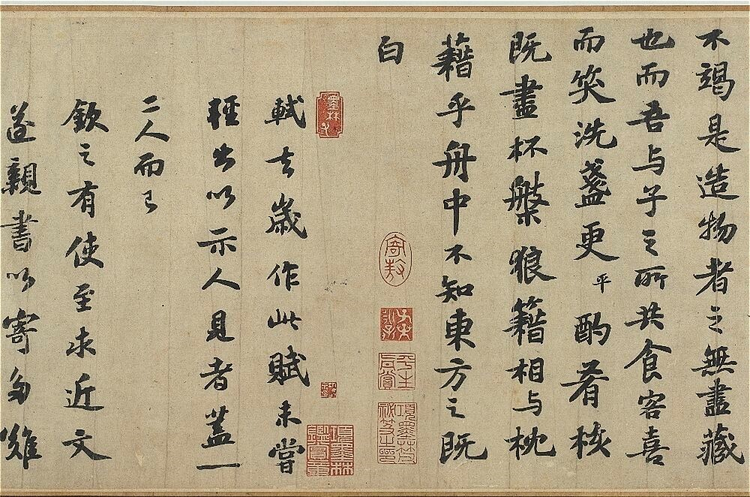 不竭是造物者之無盡藏
也而吾與子之所共食客喜
而笑洗盞更平酌肴核
既盡杯槃狼籍相與枕
藉乎舟中不知東方之既
白
軾去歲作此賦未嘗
輕出以示人見者蓋一
二人而已
欽之有使至求近文
遂親書以寄多難